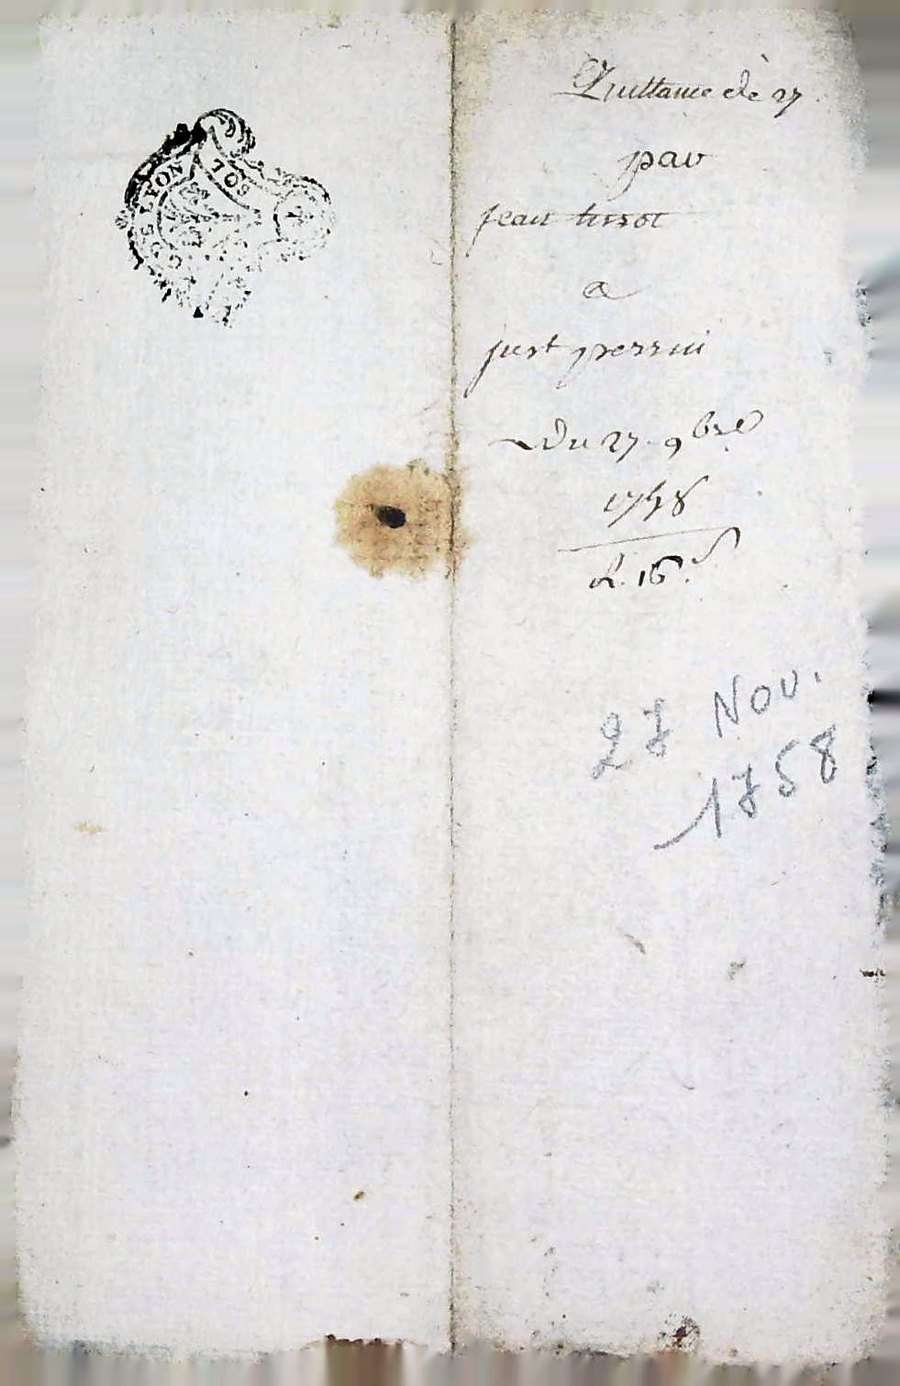 G. DE LYON
SOL
Quittance de 27
par
jean tissot
a
just perrin
Du 27. 9bre
1758
R. 16 s
27 Nov.
1758